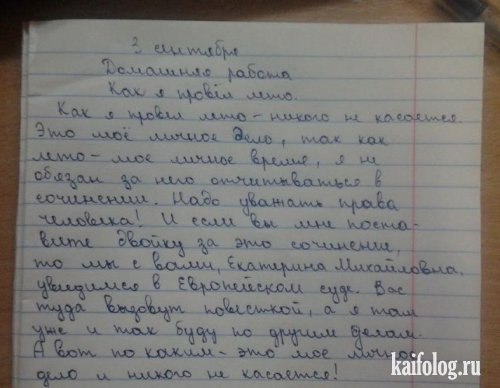 3 сентября
Домашняя работа
Как я провёл лето.
Как я провёл лето - никого не касается.
Это моё личное дело, так как
лето - мое личное время, я не
обязан за него отчитываться в
сочинении. Надо уважать права
человека! И если вы мне поста-
вите двойку за это сочинение,
то мы с вами, Екатерина Михайловна,
увидимся в Европейском суде. Вас
туда вызовут повесткой, а я там
уже и так буду по другим делам.
А вот по каким - это мое личное
дело и никого не касается!
kaifolog.ru